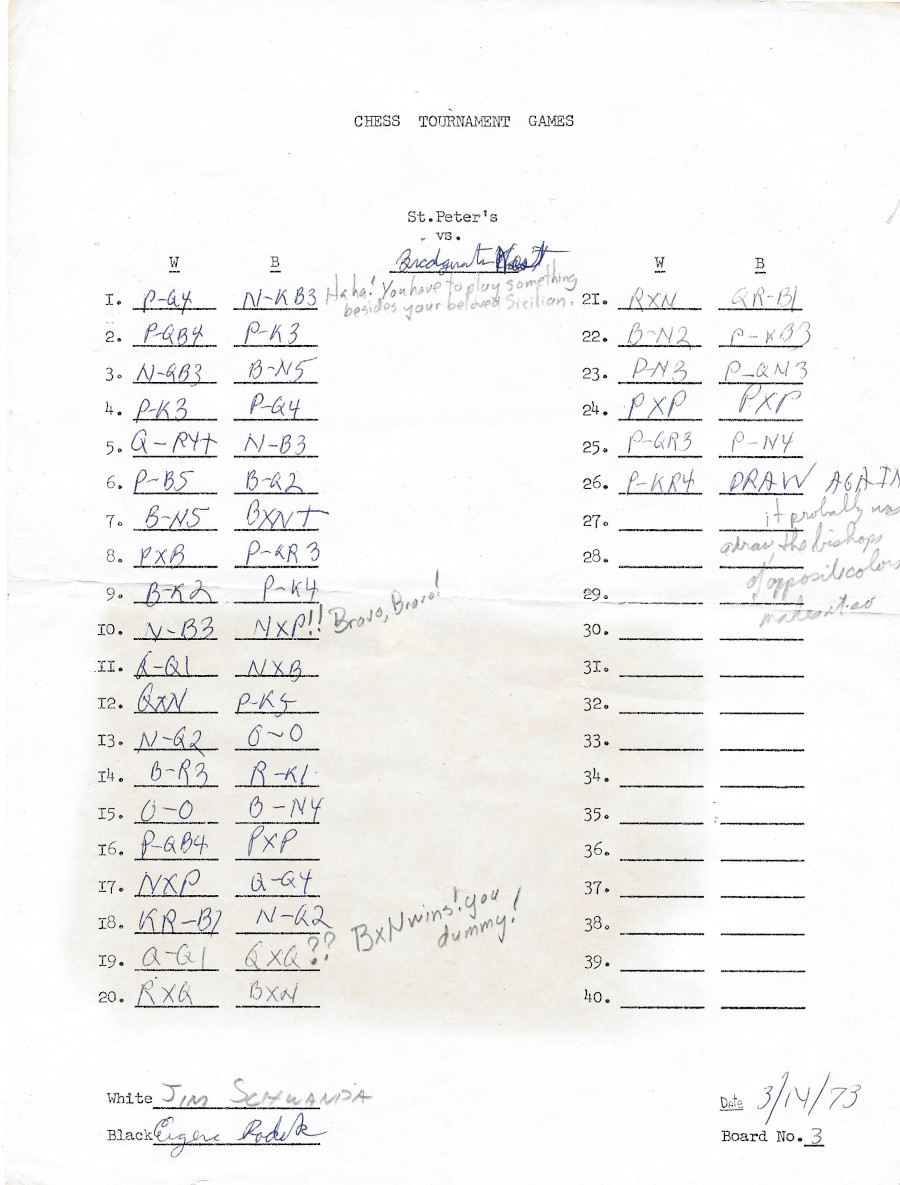 CHESS TOURNAMENT GAMES
St.Peter's
vs.
W B
I. P-Q4 N-KB3 Haha! You have to play something
besides your beloved Sicilian.
2. P-QB4 P-K3
3. N-QB3 B-N5
4. P-K3 P-Q4
5. Q-R4+ N-B3
6. P-B5 B-Q2
7. B-N5 BXN+
8. PXB P-QR3
9. B-K2 P-K4
I0. N-B3 NXP!! Bravo, Bravo!
II. Q-Q1 NXB
I2. QXN P-K5
I3. N-Q2 O-O
I4. B-R3 R-K1
I5. O-O B-N4
I6. P-QB4 PXP
I7. NXP Q-Q4
I8. KR-B1 N-Q2
I9. Q-Q1 QXQ?? BxN wins! you
dummy!
20. RXQ BXN
W B
2I. RXN QR-B1
22. B-N2 P-KB3
23. P-N3 P-QN3
24. PXP PXP
25. P-QR3 P-N4
26. P-KR4 DRAW AGAIN
it probably was
a draw the bishops
of opposite colors
makes it so
27.
28.
29.
30.
3I.
32.
33.
34.
35.
36.
37.
38.
39.
40.
White JIM
Black Eugene
Date 3/14/73
Board No. 3